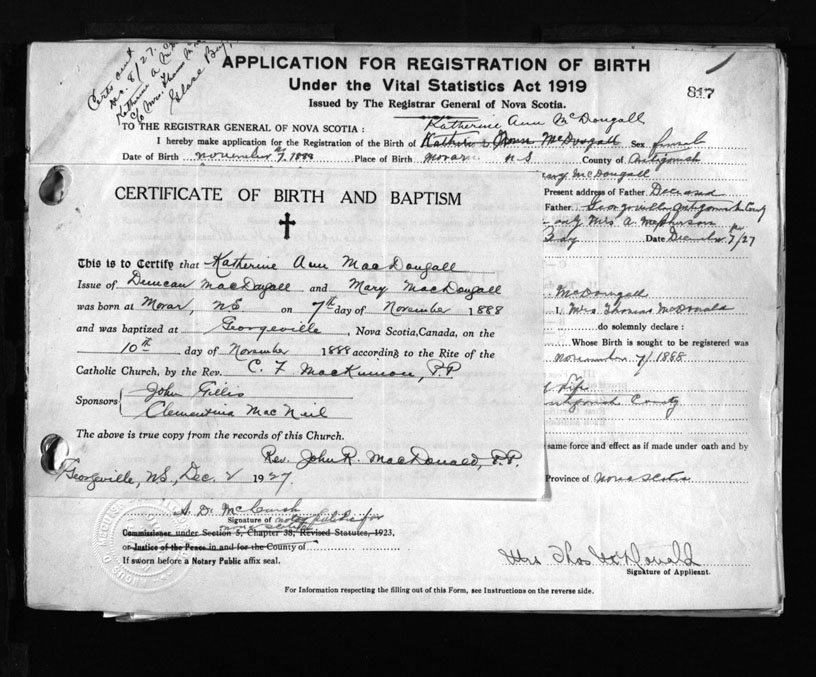 Certs sent
Dec. 8/27.
Katherine A. McD
c/o Mrs. Thomas McD
Glace Bay,
APPLICATION FOR REGISTRATION OF BIRTH
Under the Vital Statistics Act 1919
Issued by The Registrar General of Nova Scotia.
817
Katherine Ann McDougall
TO THE REGISTRAR GENERAL OF NOVA SCOTIA :
I hereby make application for the Registration of the Birth of Katherine Ann McDougall Sex female
Date of Birth November 7, 1888 Place of Birth Morar N S County of Antigonish
McDougall
Present address of Father Deceased
Father Georgeville Antigonish County
Mrs A. McPherson
Bay Date December 7/27
CERTIFICATE OF BIRTH AND BAPTISM
This is to Certify that Katherine Ann MacDougall
Issue of Duncan MacDougall and Mary MacDougall
was born at Morar, N.S. on 7th day of November 1888
and was baptized at Georgeville, Nova Scotia, Canada, on the
10th day of November 1888 according to the Rite of the
Catholic Church, by the Rev. C. F. MacKinnon, P.P.
Sponsors John Gillis
Clementina MacNeil
The above is true copy from the records of this Church.
Rev. John R. MacDonald, P.P.
Georgeville, N.S., Dec. 2 1927
McDougall
I, Mrs Thomas McDonald
do solemnly declare :
Whose Birth is sought to be registered was
November 7/1888
Antigonish County
same force and effect as if made under oath and by
Province of Nova Scotia
A. D. McIsaac
Signature of Notary Public for
Nova Scotia
Commissioner under Section 5, Chapter 38, Revised Statutes, 1923,
or Justice of the Peace in and for the County of
If sworn before a Notary Public affix seal.
Mrs Thos McDonald
Signature of Applicant.
For Information respecting the filling out of this Form, see Instructions on the reverse side.